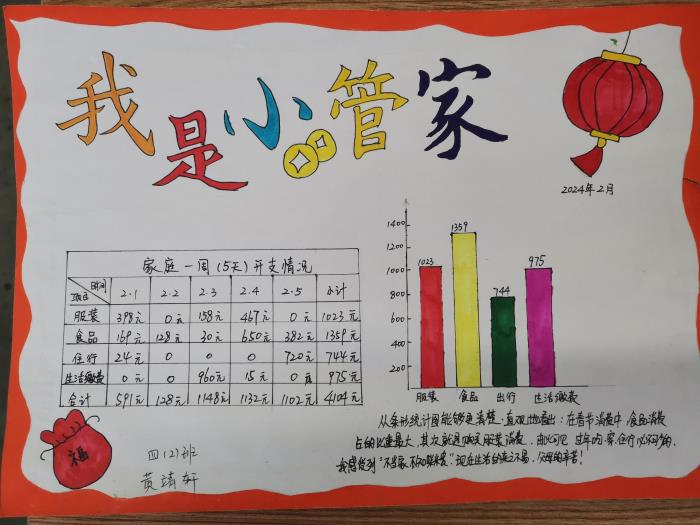 我是小管家
2024年2月
家庭一周(5天)开支情况
时间
项目 2.1 2.2 2.3 2.4 2.5 小计
服装 398元 0元 158元 467元 0元 1023元
食品 169元 128元 30元 650元 382元 1359元
住行 24元 0 0 0 720元 744元
生活缴费 0元 0元 960元 15元 0元 975元
合计 591元 128元 1148元 1132元 1102元 4104元
1400
1200
1000
800
600
400
200
1023
1359
744
975
服装 食品 出行 生活缴费
从条形统计图能够更清楚、直观地看出:在春节消费中,食品消费
占的比重最大,其次就是购买服装消费。
我感受到"不当家不知柴米贵"。现在生活的来之不易,父母的辛苦!
福
四(2)班
黄靖轩